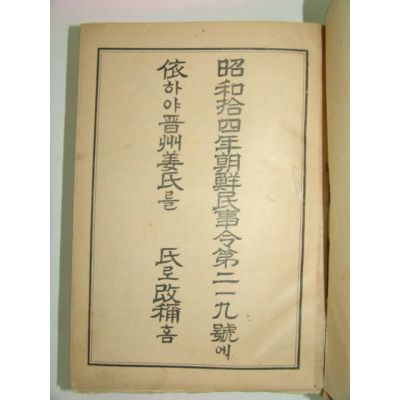 昭和拾四年朝鮮民事令第二一九號에
依하야晋州姜氏를 氏로改稱홈